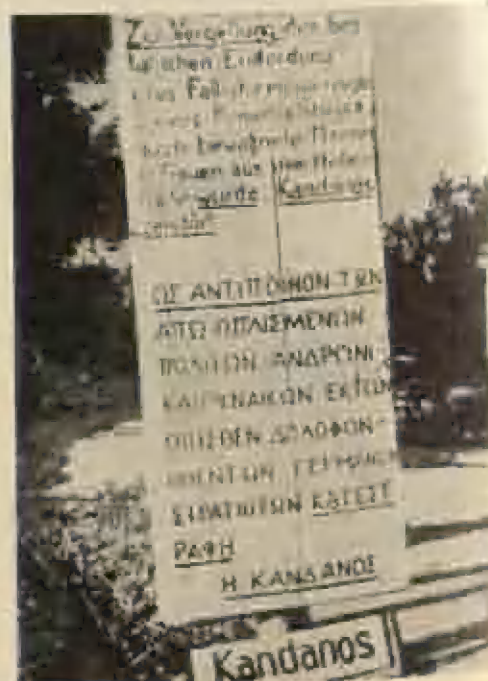 Zur Vergeltung der bes
tialischen Ermordung
eines Fallschirm
durch bewaffnete Männer
u Frauen aus dem Hinter
wurde Kandanos
zerstört
ΩΣ ΑΝΤΙΠΟΙΝΟΝ ΤΩΝ
ΟΠΛΙΣΜΕΝΩΝ
ΠΟΛΙΤΩΝ ΑΝΔΡΩΝ
ΚΑΙ ΓΥΝΑΙΚΩΝ ΕΚ ΤΩΝ
ΟΠΙΣΘΕΝ ΔΟΛΟΦΟΝ
ΗΘΕΝΤΩΝ ΓΕΡΜΑΝΩΝ
ΣΤΡΑΤΙΩΤΩΝ ΚΑΤΕΣΤ
ΡΑΦΗ
Η ΚΑΝΔΑΝΟΣ
Kandanos